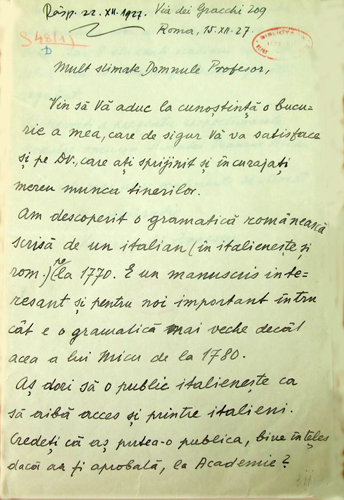 Răsp. 22.XII.1927. Via dei Gracchi 209
Roma, 15.XII.27.
S 48(1)
D
Mult stimate Domnule Profesor,
Vin să Vă aduc la cunoștință o bucu=
rie a mea, care de sigur Vă va satisface
și pe DV., care ați sprijinit și încurajați
mereu munca tinerilor.
Am descoperit o gramatică românească
scrisă de un italian (în italienește și
rom.) pe la 1770. E un manuscris inte=
resant și pentru noi important întru
cât e o gramatică mai veche decât
acea a lui Micu de la 1780.
Aș dori să o public italienește ca
să aibă acces și printre italieni.
Credeți că aș putea-o publica, bine înțeles
dacă ar fi aprobată, la Academie?